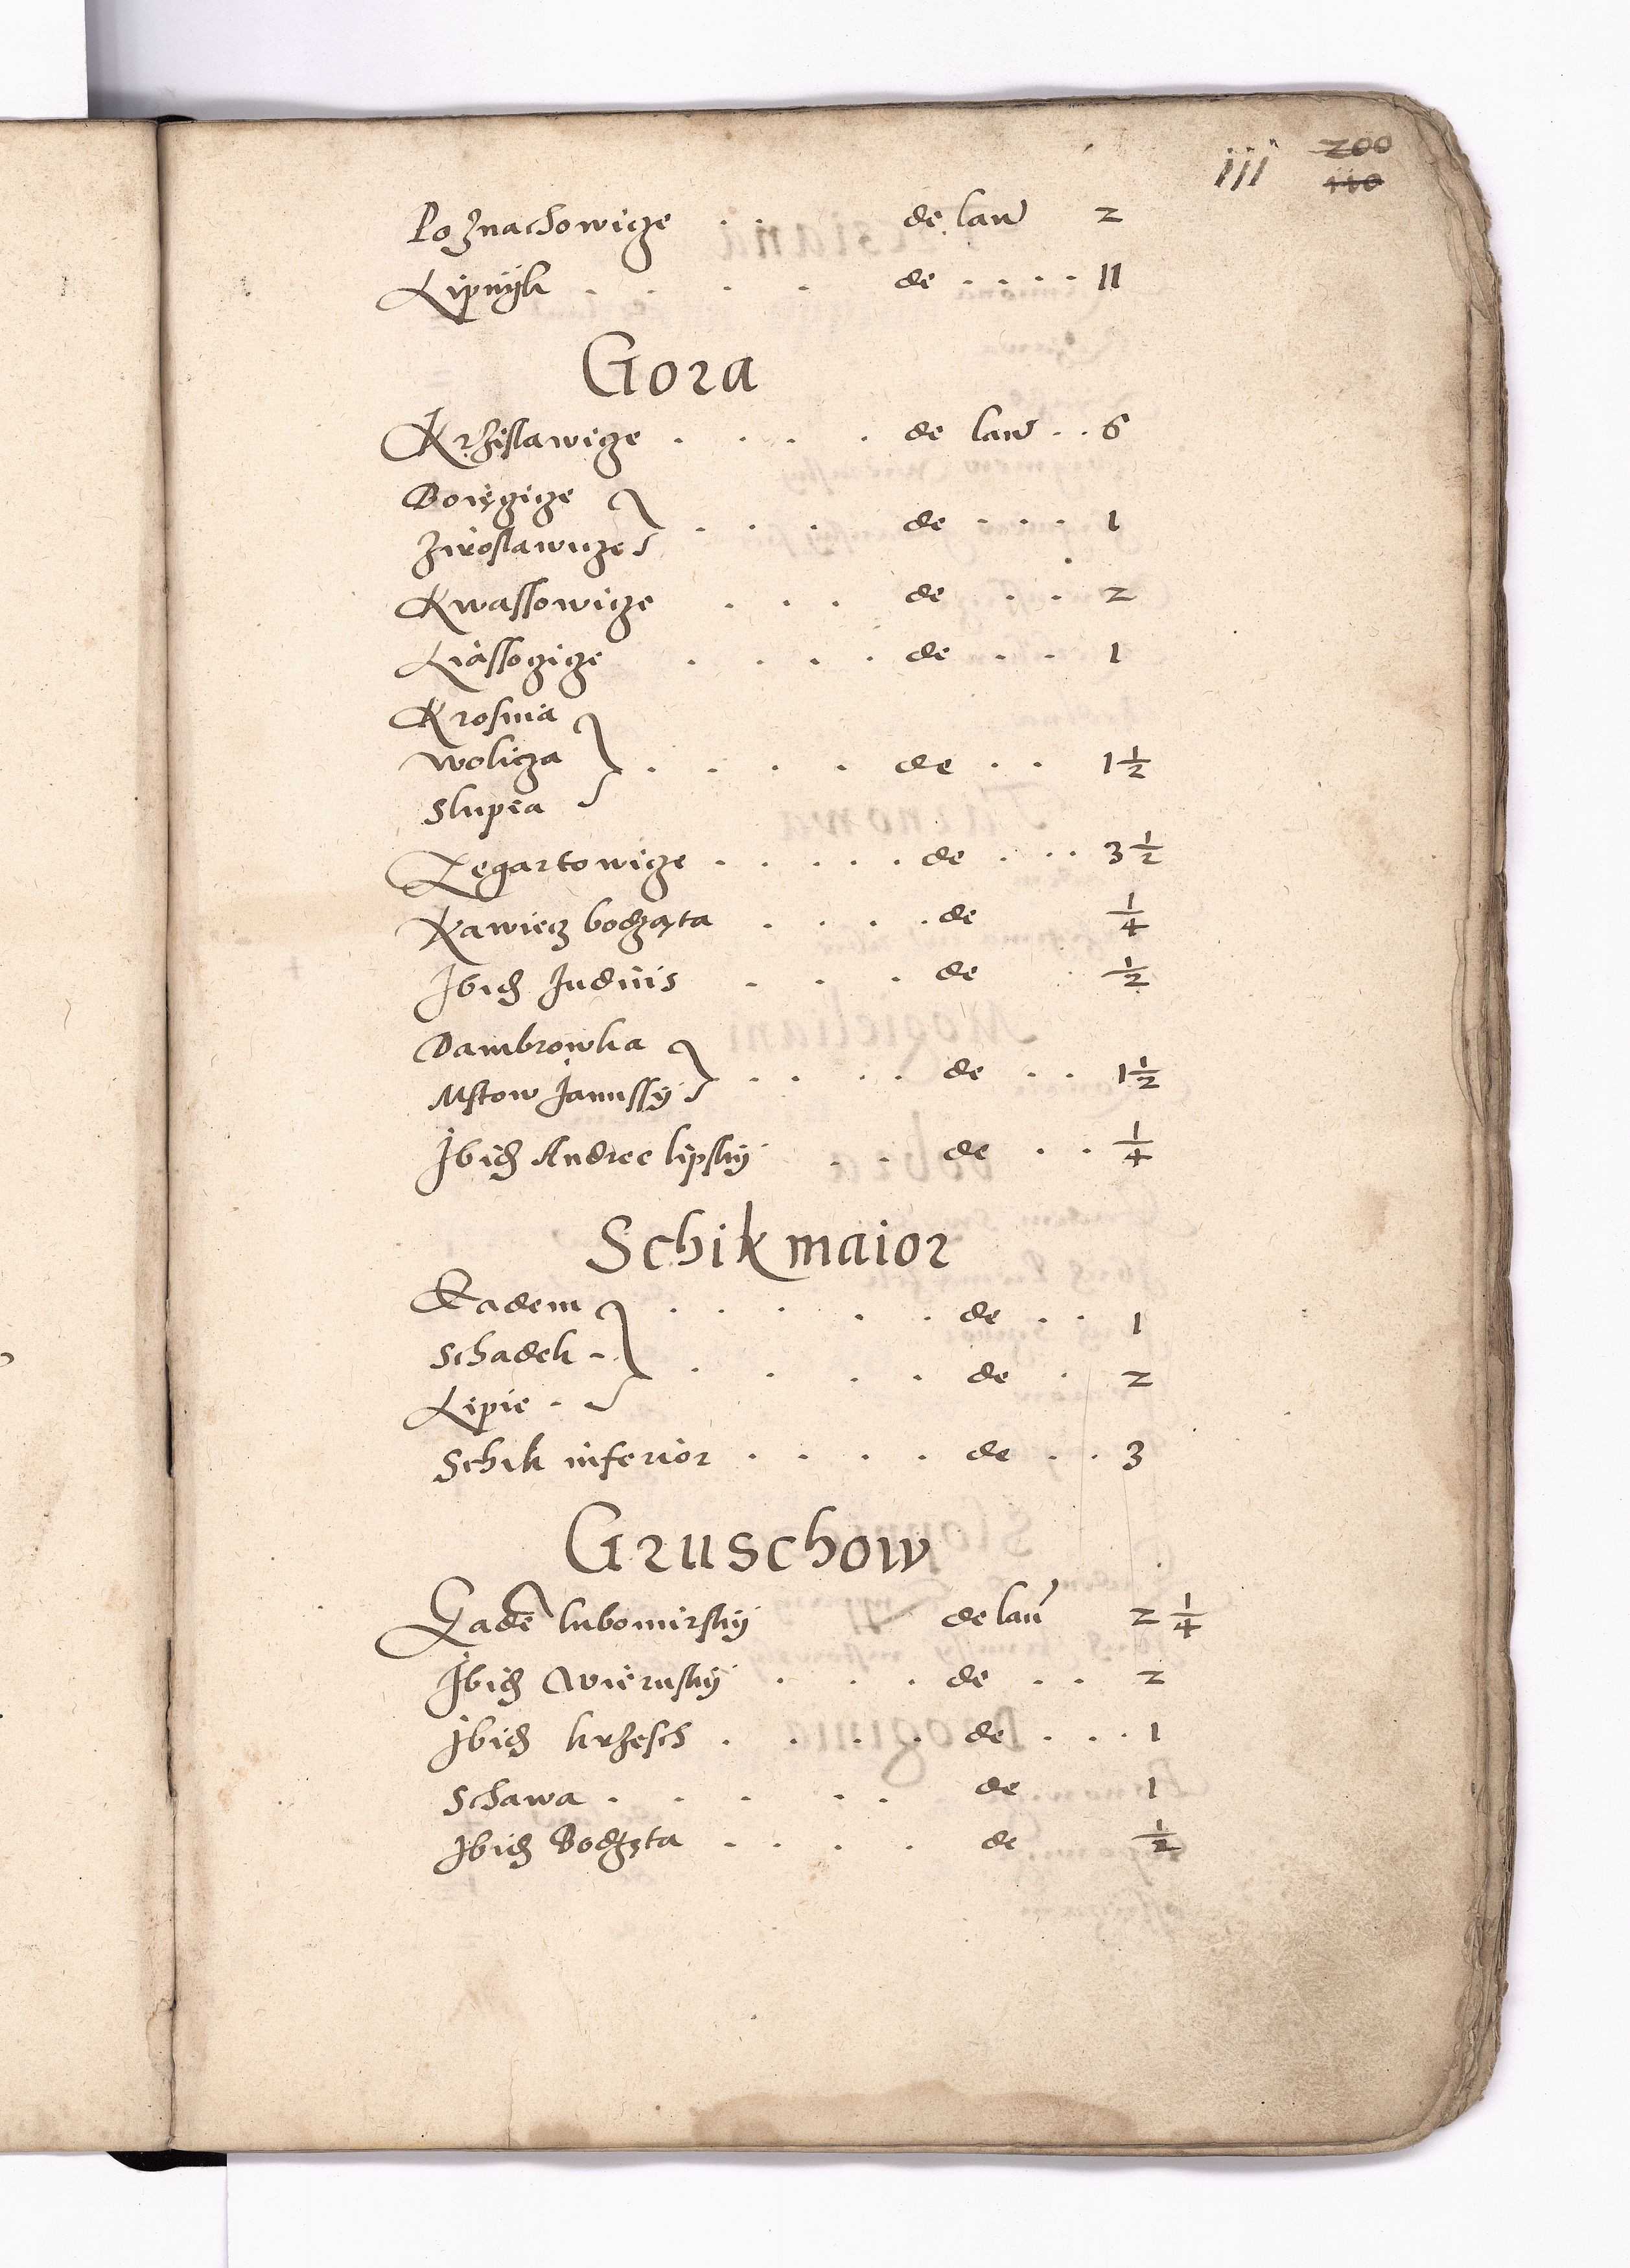 111 200
110
Poznachowicze . . de lan 2
Lipnyk . . . . de . . . . 11
Gora
Krzislawicze . . . . de lan . . 6
Boięczicze
Ziroslawicze . . . de . . . 1
Kwassowicze . . . de . . 2
Liassoczicze . . . . de . . 1
Krosnia
Wolicza . . . . de . . 1 1/2
Slupia
Zegartowicze . . . . . de . . . 3 1/2
Kawiecz bodząta . . . . de 1/4
Ibid Iudicis . . . de . 1/2
Dambrowka
Mstow Janussÿ . . . . de . . 1 1/2
Ibid Andree lipskÿ . . de . . 1/4
Schik maior
Eadem . . . . . de . . 1
Schadek . . . . . de . 2
Lipie . .
Schik inferior . . . . de . . 3
Gruschow
Eadē lubomirskÿ de lan 2 1/4
Ibid Wiernskÿ . . . de . . 2
Ibid krzesch . . . . de . . . . 1
Schawa . . . . . de 1
Ibid Bodzęta . . . . de 1/2